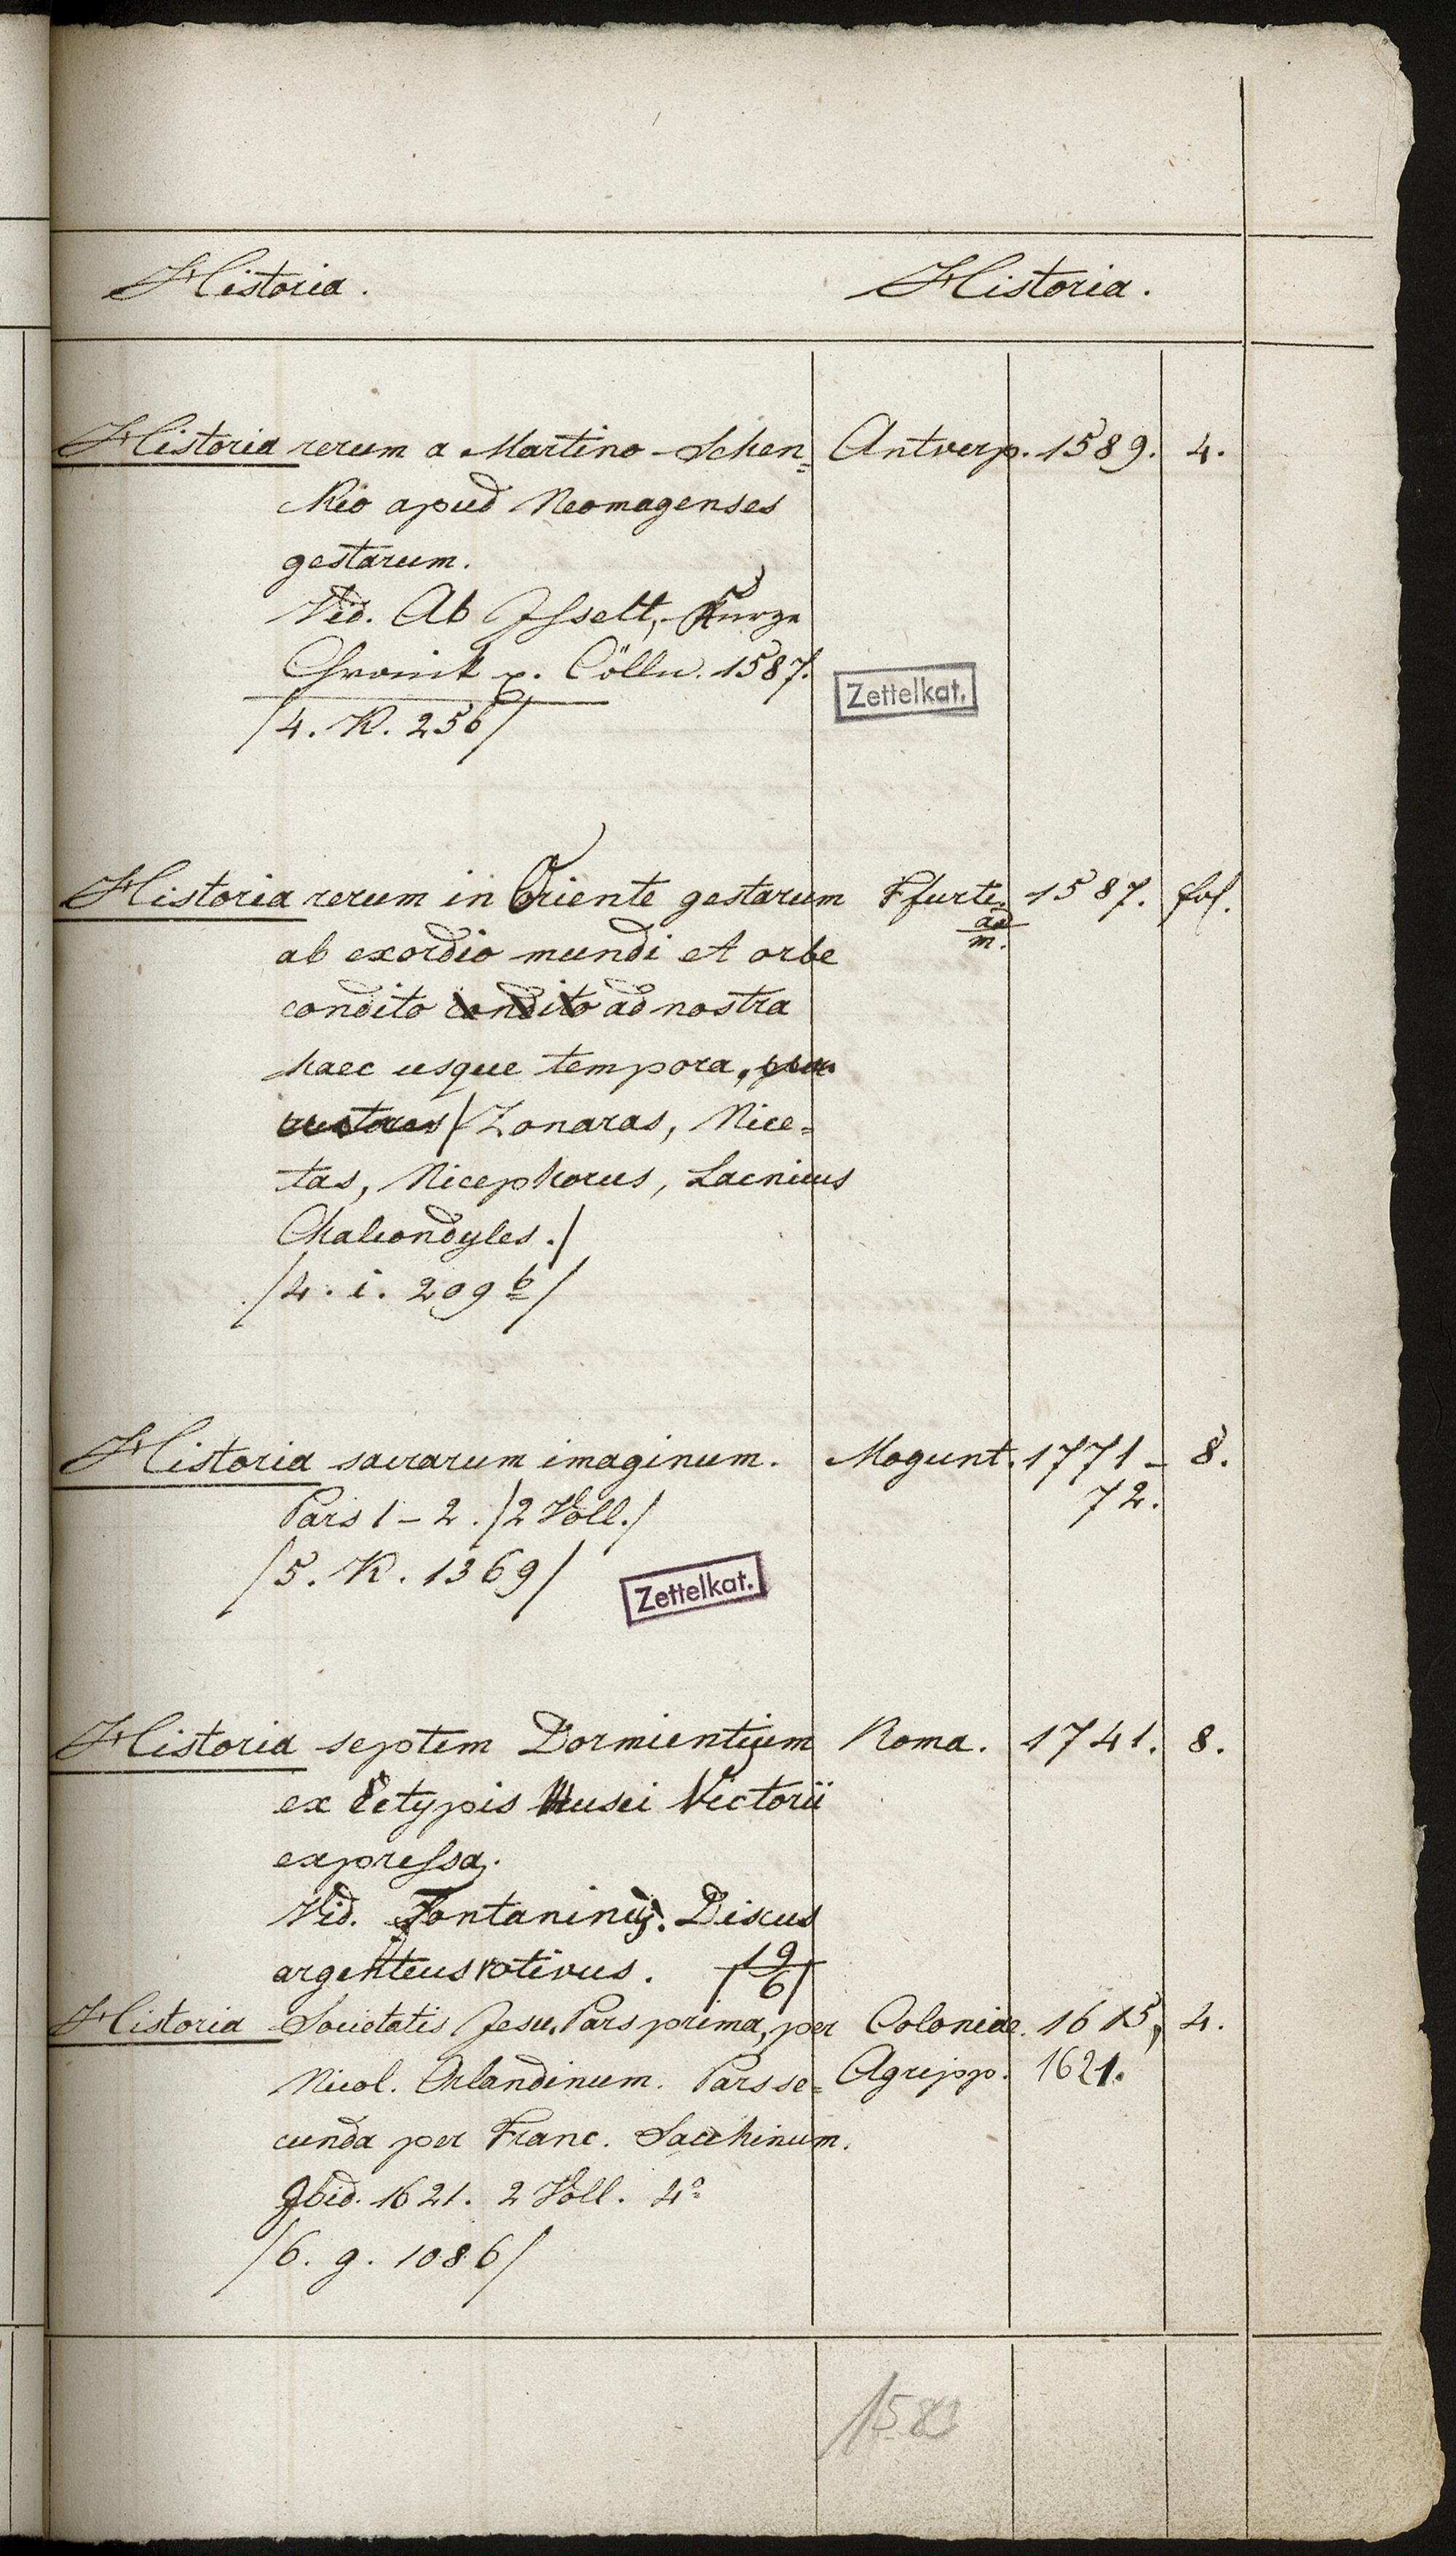 Historia. Historia.
Historia rerum a Martino Schen= Antverp. 1589. 4.
kio apud Neomagenses
gestarum.
Vid. Ab Isselt, Kurze
Chronik p. Cölln. 1587.
Zettelkat.
/4. K. 256/
Historia rerum in Oriente gestarum Ffurti 1587. fol.
ad
m.
ab exordio mundi et orbe
condito condito ad nostra
haec usque tempora,
auctores /Zonaras, Nice=
tas, Nicephorus, Laonicus
Chalcondyles./
/4. i. 209 b/
Historia sacrarum imaginum. Mogunt. 1771- 8.
72.
Pars 1-2. /2 Voll./
/5. K. 1369/
Zettelkat.
Historia septem Dormientium Roma. 1741. 8.
ex Ectypis Musei Victorii
expressa.
Vid. Fontaninus. Discus
argenteus votivus.
Historia Societatis Jesu. Pars prima, per Coloniae 1615, 4.
Nicol. Orlandinum. Pars se= Agripp. 1621.
cunda per Franc. Sacchinum.
Ibid. 1621. 2 Voll. 4°
/6. g. 1086/